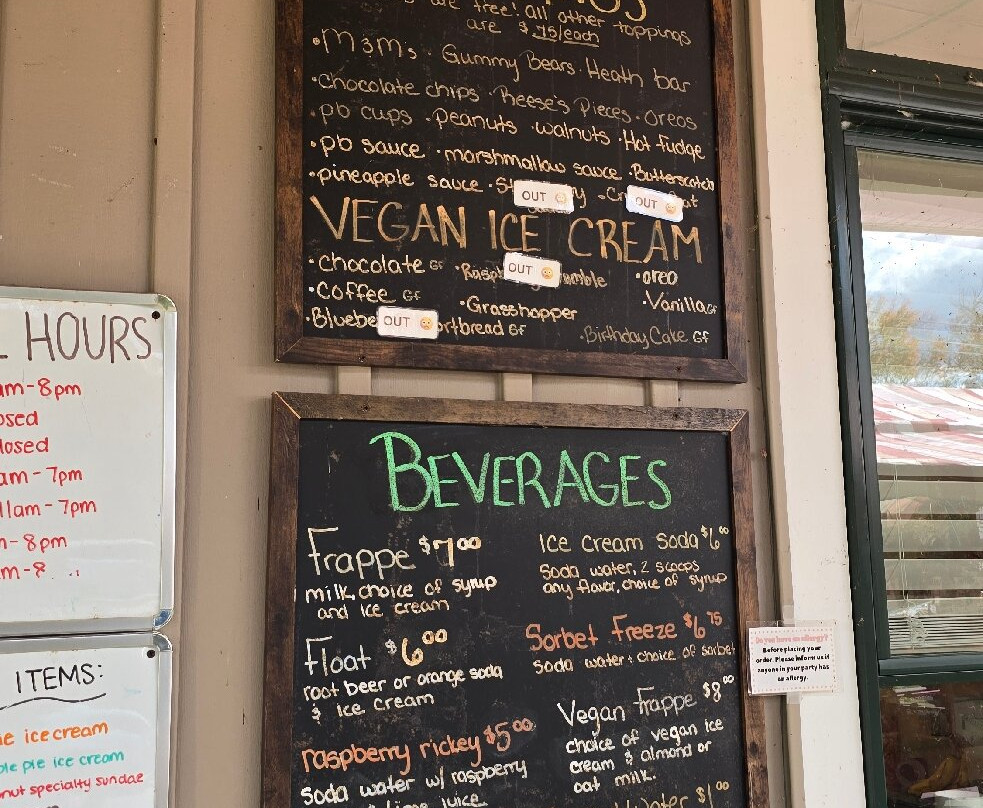 are free! all other toppings
are $.75/each
•M&Ms •Gummy Bears •Heath bar
•chocolate chips •Reese's Pieces •oreos
•pb cups •peanuts •walnuts •Hot fudge
•pb sauce •marshmallow sauce •Butterscotch
•pineapple sauce OUT OUT
VEGAN ICE CREAM
•chocolate GF OUT •oreo
•coffee GF •Grasshopper •Vanilla GF
OUT GF •Birthday Cake GF
HOURS
am-8pm
osed
losed
am-7pm
11am-7pm
m-8pm
m-8
ITEMS:
ice cream
ple pie ice cream
nut specialty sundae
BEVERAGES
Frappe $7.00
milk, choice of syrup
and ice cream
Float $6.00
root beer or orange soda
& ice cream
raspberry rickey $5.00
soda water w/ raspberry
& lime juice
Ice Cream Soda $6.00
Soda water, 2 scoops
any flavor, choice of syrup
Sorbet Freeze $6.75
soda water + choice of sorbet
Vegan Frappe $8.00
choice of vegan ice
cream & almond or
oat milk.
Water $1.00
Do you have an allergy?
Before placing your
order. Please inform us if
anyone in your party has
an allergy.